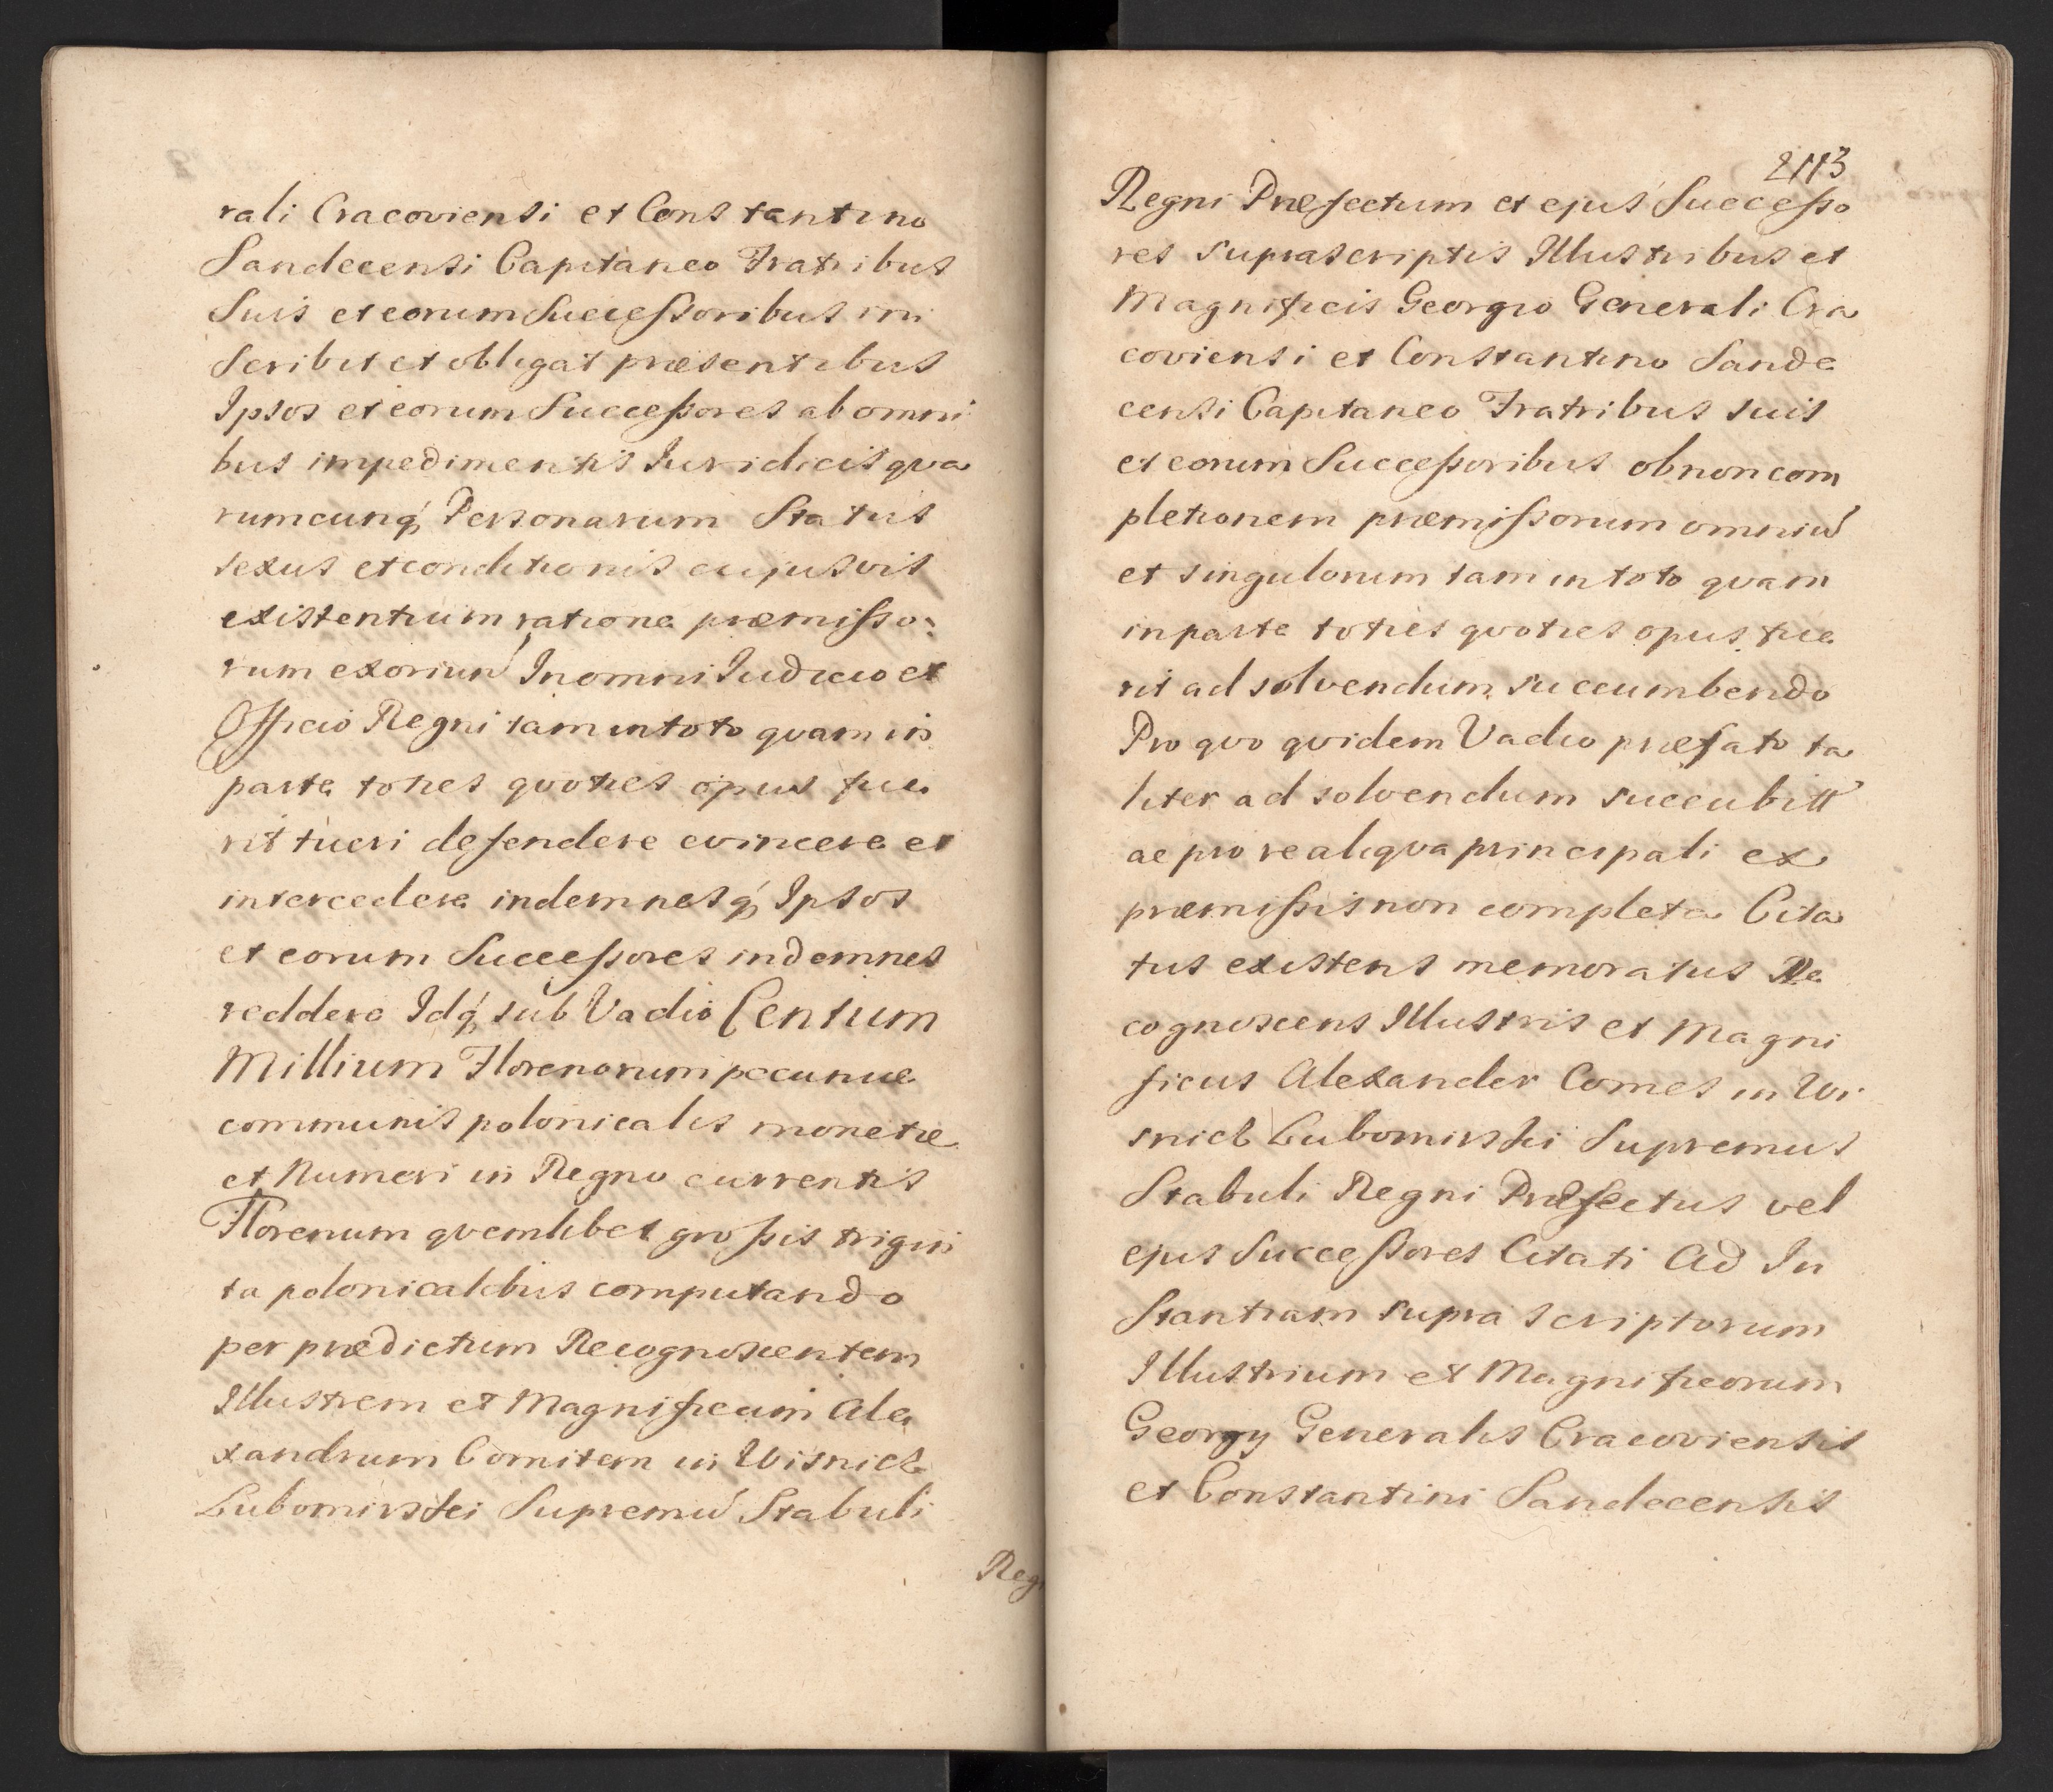 rali Cracoviensi et Constantino
Sandecensi Capitaneo Fratribus
Suis et eorum Successoribus in
scribit et obligat præsentibus
Ipsos et eorum Successores ab omni
bus impedimentis Iuridicis qva
rumcunq́ Personarum Status
sexus et conditionis cujusvis
existentium ratione præmisso:
rum exoriun In omni Iudicio et
Officio Regni tam in toto qvam in
parte toties qvoties opus fue
rit tueri defendere evincere et
intercedere indemnesq́ Ipsos
et eorum Successores indemnes
reddere Idq́ sub Vadio Centum
Millium Florenorum pecuniæ
communis polonicalis monetæ
et Numeri in Regno currentis
Florenum qvemlibet grossis trigin
ta polonicalibus computando
per prædictum Recognoscentem
Illustrem et Magnificum Ale
xandrum Comitem in Wisnicz
Lubomirski Supremu Stabuli
Reg
2113
Regni Præfectum et ejus Successo
res suprascriptis Illustribus et
Magnificis Georgio Generali Cra
coviensi et Constantino Sande
censi Capitaneo Fratribus suis
et eorum Successoribus ob non com
pletionem præmissorum omniu
et singulorum tam in toto qvam
in parte toties qvoties opus fue
rit ad solvendum succumbendo
Pro qvo qvidem Vadio præfato ta
liter ad solvendum succubitt
ac pro re aliqva principali ex
præmissis non completa Cita
tus existens memoratus Re
cognoscens Illustris et Magni
ficus Alexander Comes in Wi
snicz Lubomirski Supremus
Stabuli Regni Præfectus vel
ejus Successores Citati Ad In
stantiam supra scriptorum
Illustrium et Magnificorum
Georgy Generalis Cracoviensis
et Constantini Sandecensis